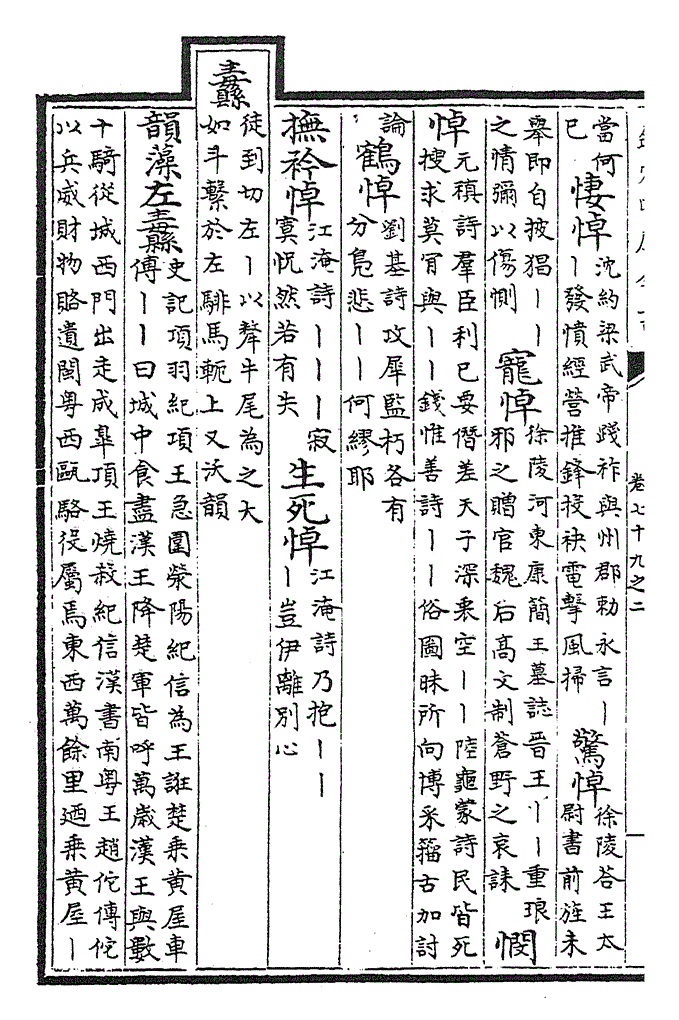 卷七十九之二
當何
已
悽悼
沈約梁武帝踐祚與州郡勅永言丨
丨發憤經營推鋒投袂電擊風掃
驚悼
徐陵荅王太
尉書前旌未
舉即自披猖丨丨
之情彌以傷惻
寵悼
徐陵河東康簡王墓誌晉王丨丨重琅
邪之贈官魏后高文制蒼野之哀誄
憫
悼
元稹詩羣臣利已要僭差天子深衷空丨丨陸龜蒙詩民皆死
搜求莫肯與丨丨錢惟善詩丨丨俗圖昧所向博采籀古加討
論
鶴悼
劉基詩攻犀監朽各有
分鳧悲丨丨何繆耶
撫衿悼
江淹詩丨丨丨寂
寞怳然若有失
生死悼
江淹詩乃抱丨丨
丨豈伊離別心
纛
徒到切左丨以犛牛尾為之大
如斗繫於左騑馬軛上又沃韻
韻藻左纛
史記項羽紀項王急圍滎陽紀信為王誑楚乘黃屋車
傅丨丨曰城中食盡漢王降楚軍皆呼萬歲漢王與數
十騎從城西門出走成臯項王燒殺紀信漢書南粵王趙佗傳佗
以兵威財物賂遺閩粵西甌駱役屬焉東西萬餘里迺乘黃屋丨